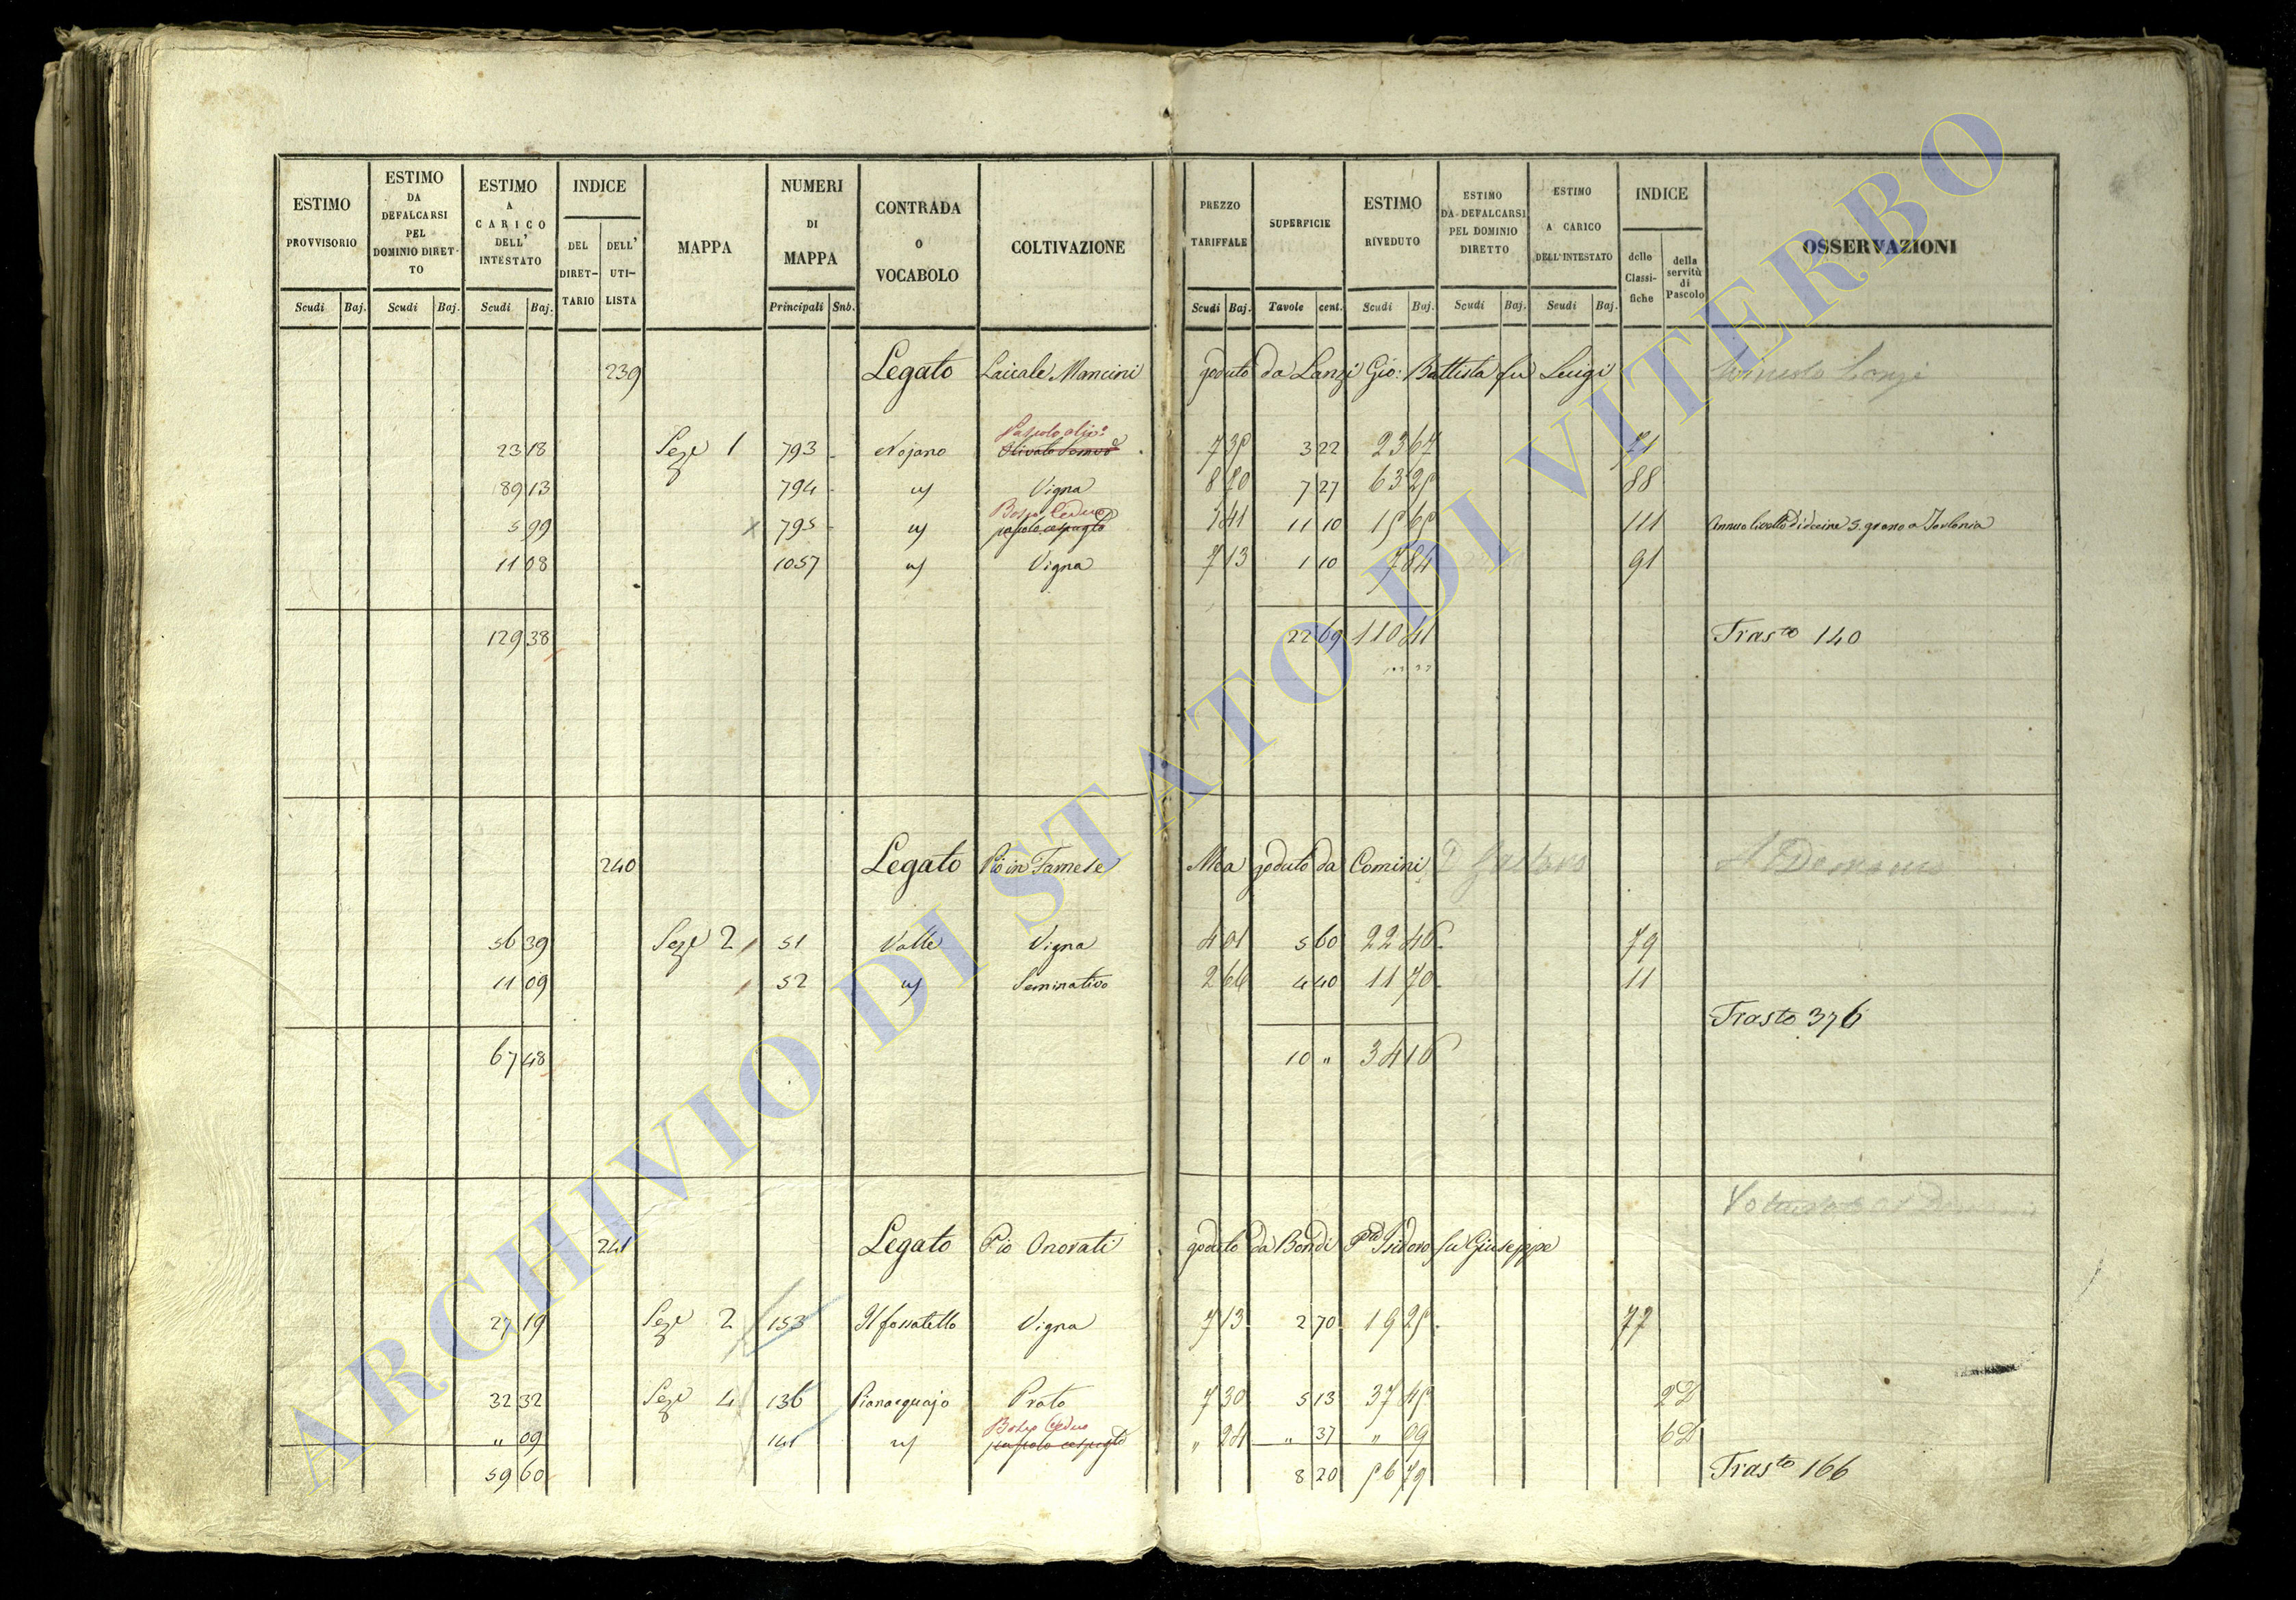 ESTIMO PROVVISORIO
Scudi Baj.
ESTIMO DA DEFALCARSI PEL DOMINIO DIRET-TO
Scudi Baj.
ESTIMO A CARICO DELL' INTESTATO
Scudi Baj.
INDICE
DEL DIRET-TARIO
DELL' UTI-LISTA
MAPPA
NUMERI DI MAPPA
Principali Snb.
CONTRADA O VOCABOLO
COLTIVAZIONE
PREZZO TARIFFALE
Scudi Baj.
SUPERFICIE
Tavole cent.
ESTIMO RIVEDUTO
Scudi Baj.
ESTIMO DA DEFALCARSI PEL DOMINIO DIRETTO
Scudi Baj.
ESTIMO A CARICO DELL'INTESTATO
Scudi Baj.
INDICE
delle Classi-fiche
della servitù di Pascolo
OSSERVAZIONI
239 Legato Laicale Mancini goduto da Lanzi Gio: Battista fu Luigi
Pascolo oliv.o
23 18 Seze 1 793 Nojano 7 35 3 22 23 67 71
89 13 794 " Vigna 8 70 7 27 63 25 88
Bosco Ceduo
5 99 795 " pascolo cespugto 1 41 11 10 15 65 111 Annuo livello di decine 5 grano a
11 08 1057 " Vigna 7 13 1 10 7 84 91
129 38 22 69 110 41 Trasto 140
240 Legato Pio in Farnese Mea goduto da Comini
56 39 Seze 2 51 Valle Vigna 4 01 5 60 22 46 79
11 09 52 " Seminativo 2 66 4 40 11 70 11
Trasto 376
67 48 10 " 34 16
241 Legato Pio Onorati goduto da Bondi Isidoro fu Giuseppe
27 19 Seze 2 153 Il fossatello Vigna 7 13 2 70 19 25 77
32 32 Seze 4 136 Pianacquajo Prato 7 30 5 13 37 45 2D
Bosco Ceduo
" 09 141 " pascolo cespugto " 24 " 37 " 09 6D
59 60 8 20 56 79 Trasto 166
ARCHIVIO DI STATO DI VITERBO